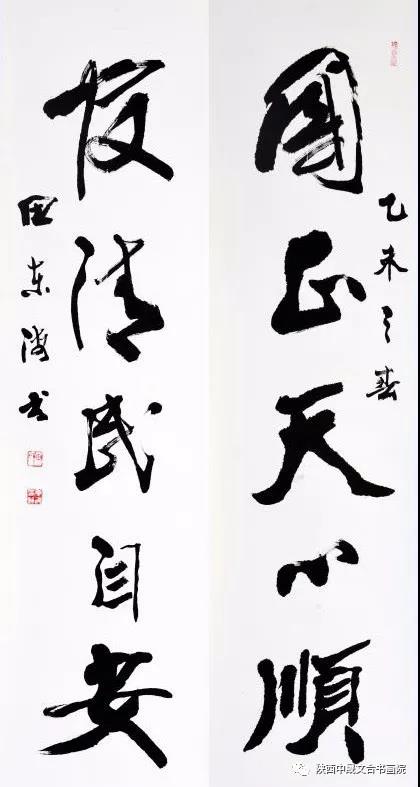 乙未之春
國正天心順
清民自安
东海书
陕西中晟文合书画院